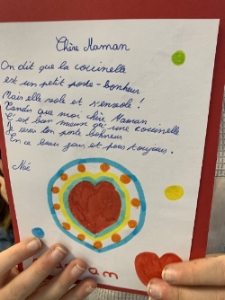 Chère Maman
On dit que la coccinelle
est un petit porte-bonheur
Mais elle vole et s'envole !
Tandis que mon chère Maman
C'est bien mieux qu'une coccinelle
Je suis ton porte bonheur
En ce beau jour et pour toujours.
Noé